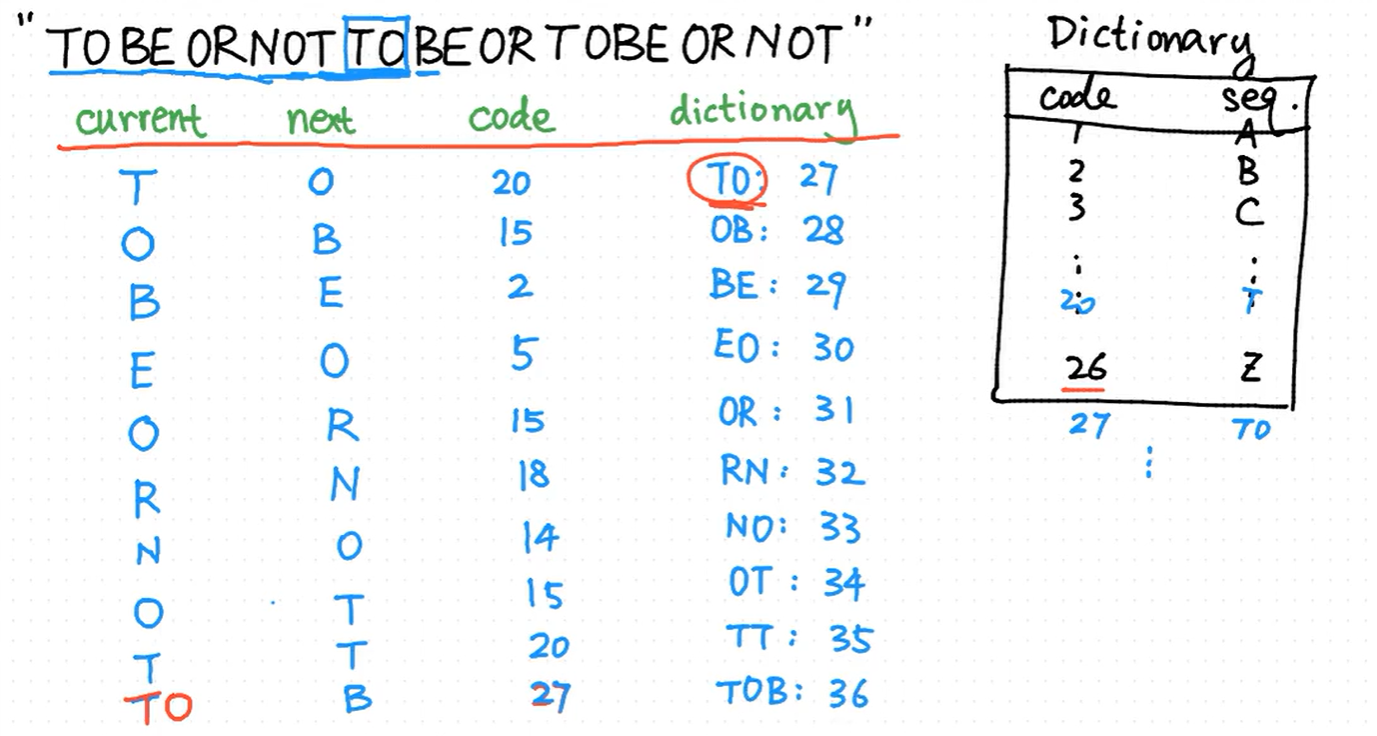 "TO BE OR NOT TO BE OR TOBE OR NOT"
current next code dictionary
T O 20 TO: 27
O B 15 OB: 28
B E 2 BE: 29
E O 5 EO: 30
O R 15 OR: 31
R N 18 RN: 32
N O 14 NO: 33
O T 15 OT: 34
T T 20 TT: 35
TO B 27 TOB: 36
Dictionary
code seq.
1 A
2 B
3 C
⋮ ⋮
20 T
26 Z
27 TO
⋮